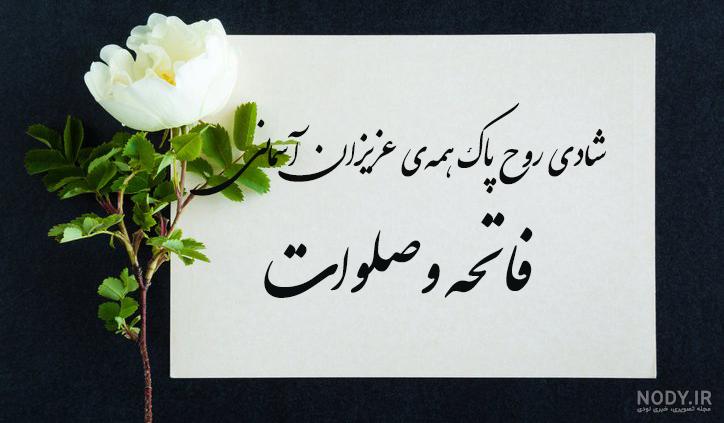 شادی روح پاک همه‌ی عزیزان آسمانی
فاتحه و صلوات
NODY.IR
مجله تصویری، خبری نودی